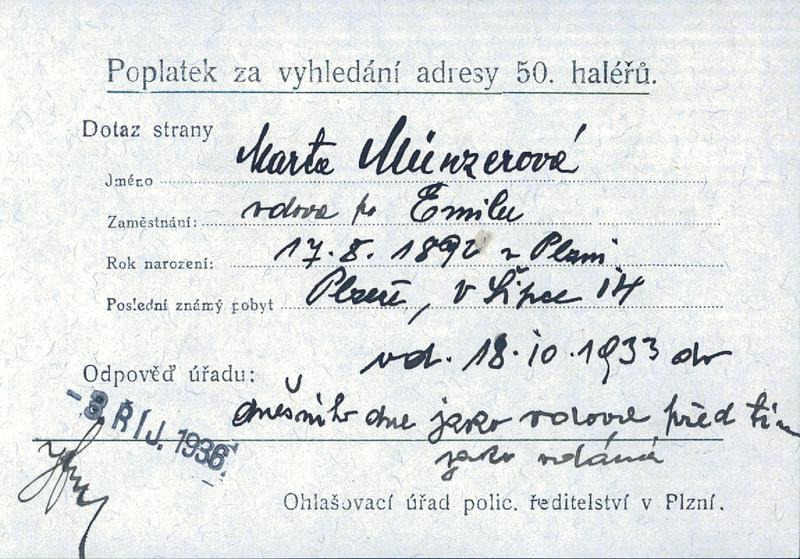 Poplatek za vyhledání adresy 50. haléřů.
Dotaz strany
Jméno Marta Münzerová
Zaměstnání: vdova po Emilu
Rok narození: 17. 8. 1892 v Plzni
Poslední známý pobyt Plzeň, v Šipce 14
od. 18.10.1933 do
Odpověď úřadu:
dnešního dne jako vdova před tím
- 3. ŘÍJ. 1936
jako vdaná
Ohlašovací úřad polic. ředitelství v Plzni.